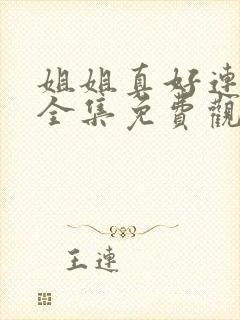 姐姐真好連
全集免費觀
王連